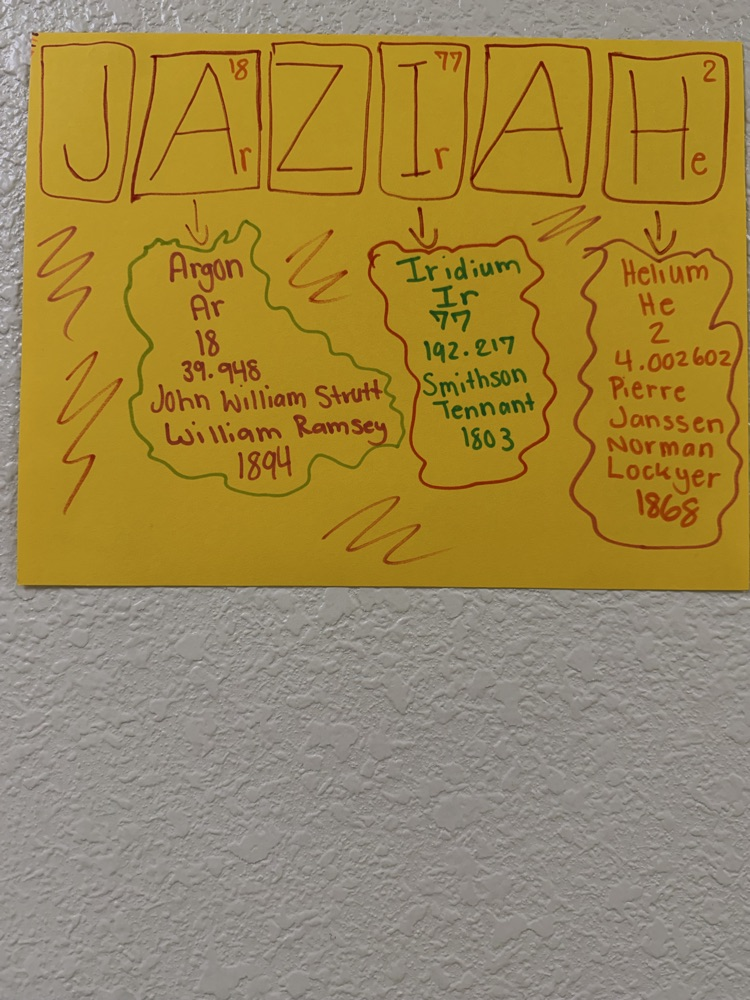 J Ar 18 Z Ir 77 A He 2
Argon
Ar
18
39.948
John William Strutt
William Ramsey
1894
Iridium
Ir
77
192.217
Smithson
Tennant
1803
Helium
He
2
4.002602
Pierre
Janssen
Norman
Lockyer
1868